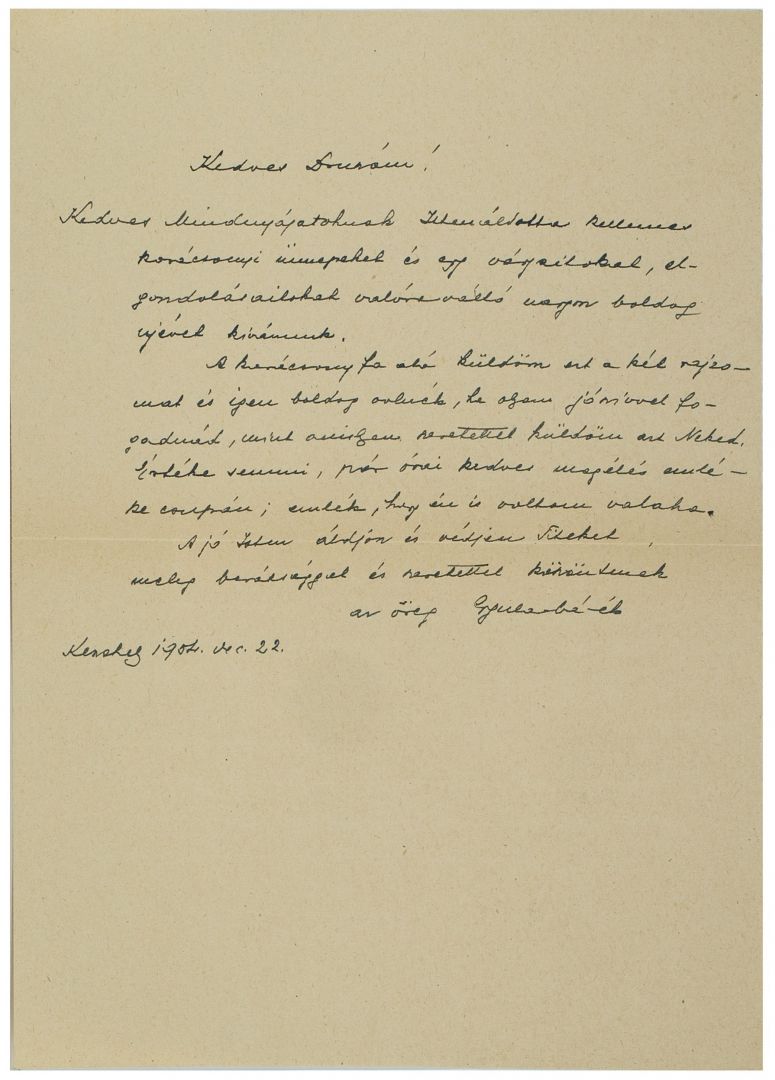 Kedves Druzám!
Kedves Mindnyájatoknak Istenáldotta kellemes
karácsonyi ünnepeket és egy vágyaitokat, el-
gondolásaitokat valóra váltó nagyon boldog
ujévet kívánunk.
A karácsonyfa alá küldöm ezt a két rajzo-
mat és igen boldog volnék, ha olyan jószívvel fo-
gadnád, mint amilyen szeretettel küldöm azt Neked.
Értéke semmi, pár órai kedves megélés emlé-
ke csupán; emlék, hogy én is voltam valaha.
A jó Isten áldjon és védjen Titeket,
meleg barátsággal és szeretettel köszöntenek
az öreg Gyula-bá-ék
dec. 22.